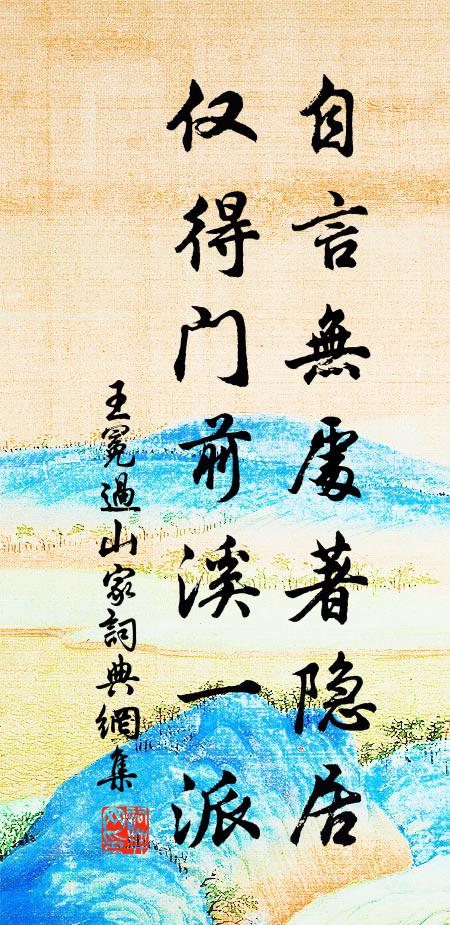 自言無處著隐居
仅得门前溪一派
王冕過山家詞典網集